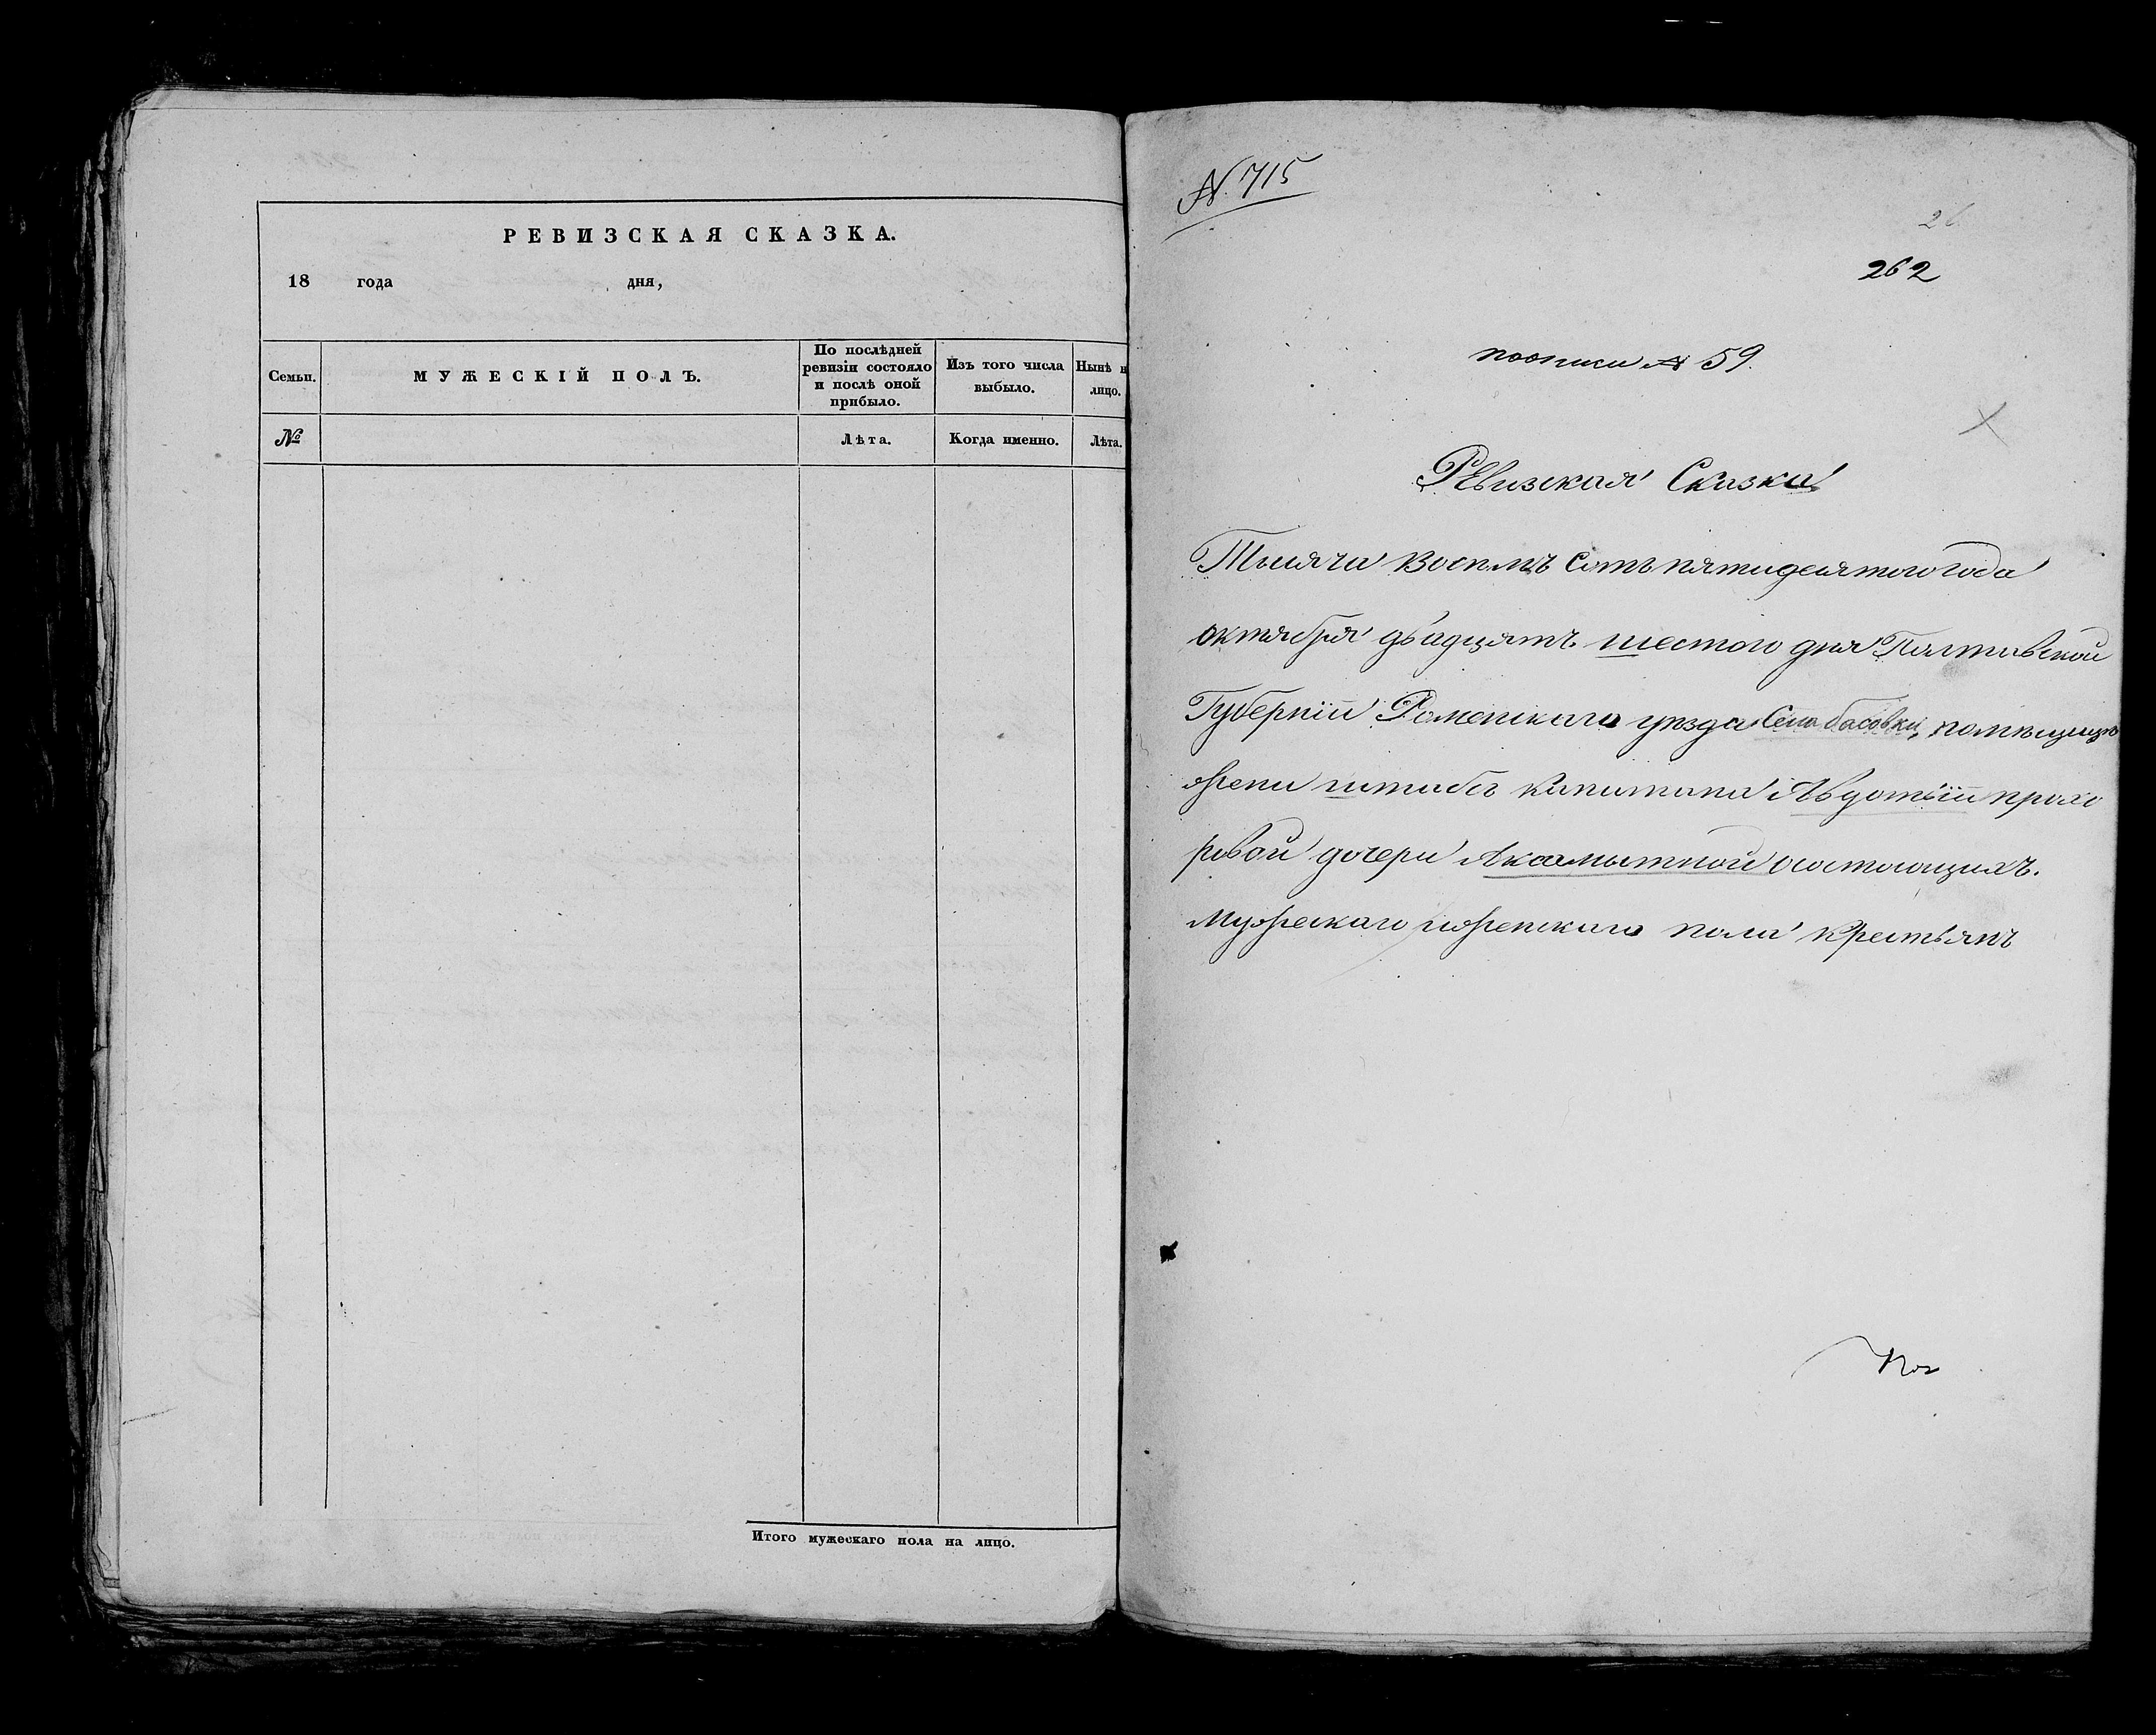 РЕВИЗСКАЯ СКАЗКА.
18 года дня,
Семьи.
МУЖЕСКІЙ ПОЛЪ.
По послѣдней
ревизіи состояло
и послѣ оной
прибыло.
Изъ того числа
выбыло.
Нынѣ н
лицо.
№
Лѣта.
Когда именно.
Лѣта.
Итого мужескаго пола на лицо.
N. 715
262
поописи № 59.
Ревизская Сказка
Тысяча Восемъ Сотъ пятидесятого года
октября двадцять шестого дня Полтавской
Губерніи Роменского уезда Села басовки, помѣщицы
жени штабс капитана Авдотіи прохо
ровой дочери Аксамытной осостоющихъ.
Мужеского иженского пола крестьянъ